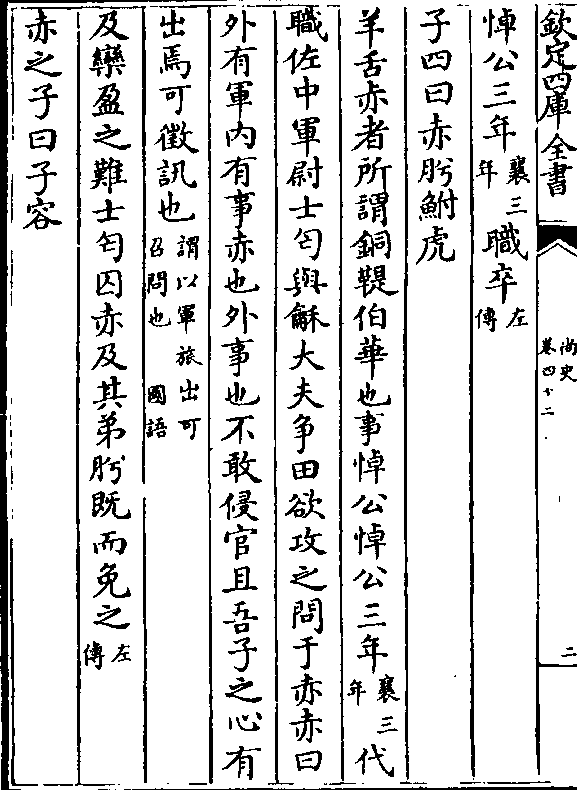 欽定四庫全書
尚史
卷四十二
二
悼公三年襄三年職卒左傳
子四曰赤肸鮒虎
羊舌赤者所謂銅鞮伯華也事悼公悼公三年襄三年代
職佐中軍尉士匄與龢大夫爭田欲攻之問于赤赤曰
外有軍内有事赤也外事也不敢侵官且吾子之心有
出焉可徵訊也謂以軍旅出可召問也 國語
及欒盈之難士匄囚赤及其弟肸既而免之左傳
赤之子曰子容